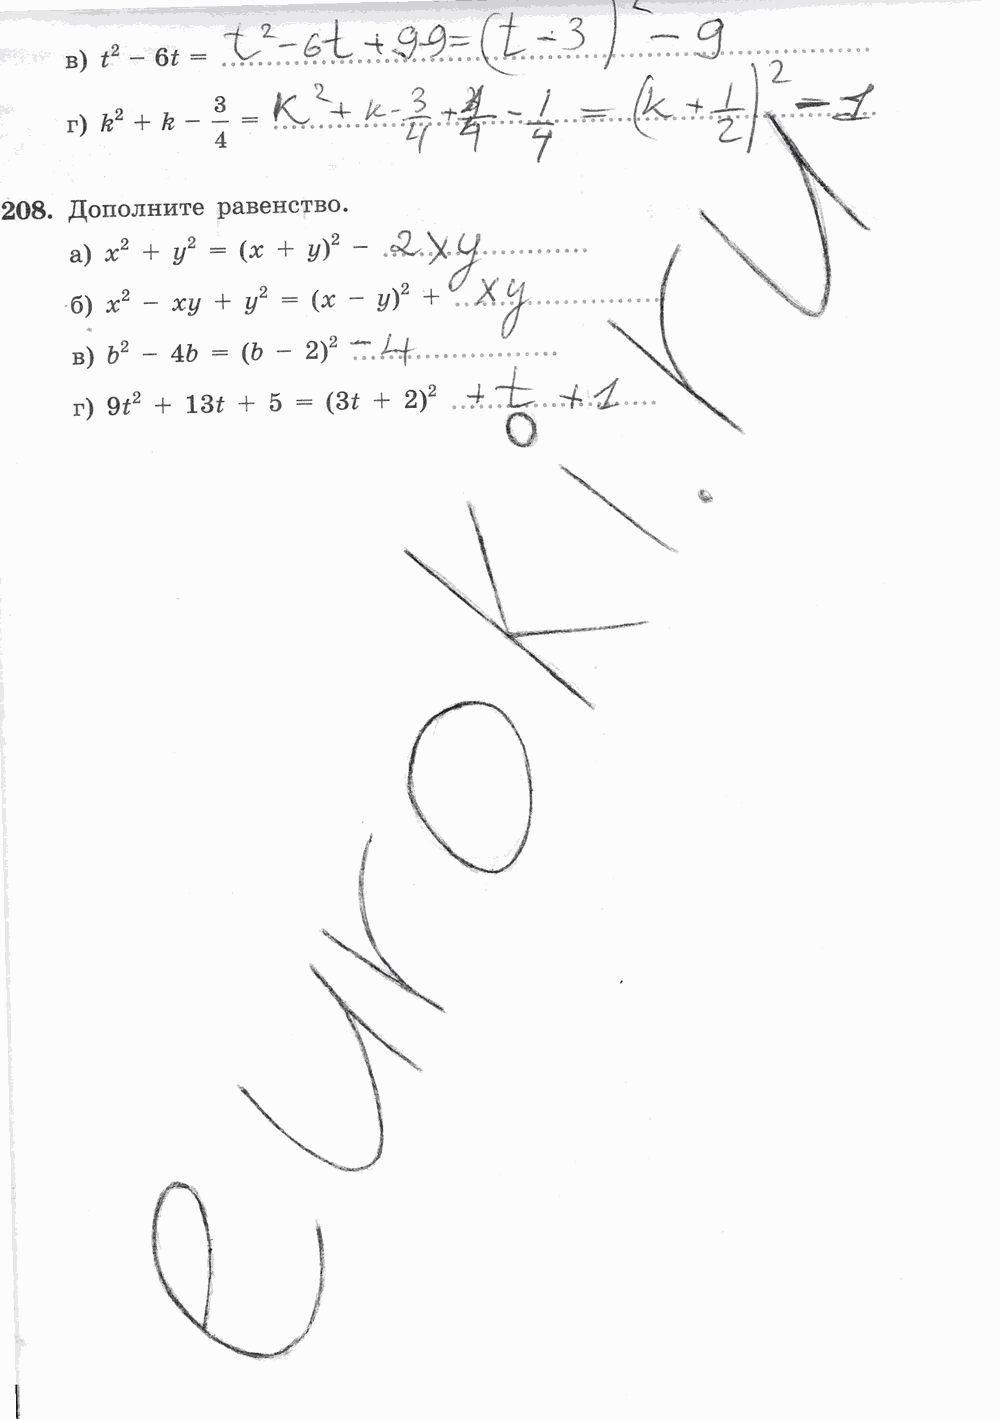 в) t² − 6t = t² − 6t + 9 − 9 = (t − 3)² − 9
г) k² + k − 3/4 = k² + k − 3/4 + 1/4 − 1/4 = (k + 1/2)² − 1
208. Дополните равенство.
а) x² + y² = (x + y)² − 2xy
б) x² − xy + y² = (x − y)² + xy
в) b² − 4b = (b − 2)² − 4
г) 9t² + 13t + 5 = (3t + 2)² + t + 1
eurokoki.ru